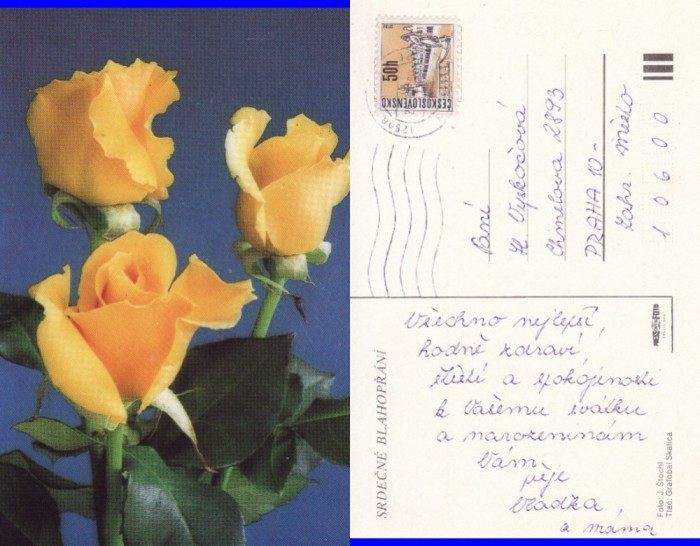 50h
ČESKOSLOVENSKO
Paní
H. Vyskočová
Chmelova 2893
PRAHA 10 -
Zahr. Město
1 0 6 0 0
SRDEČNÉ BLAHOPŘÁNÍ
Všechno nejlepší,
hodně zdraví,
štěstí a spokojenosti
k Vašemu svátku
a narozeninám
Vám
přeje
Vladka
a máma
Foto: J. Štochl
Tlač: Grafobal Skalica